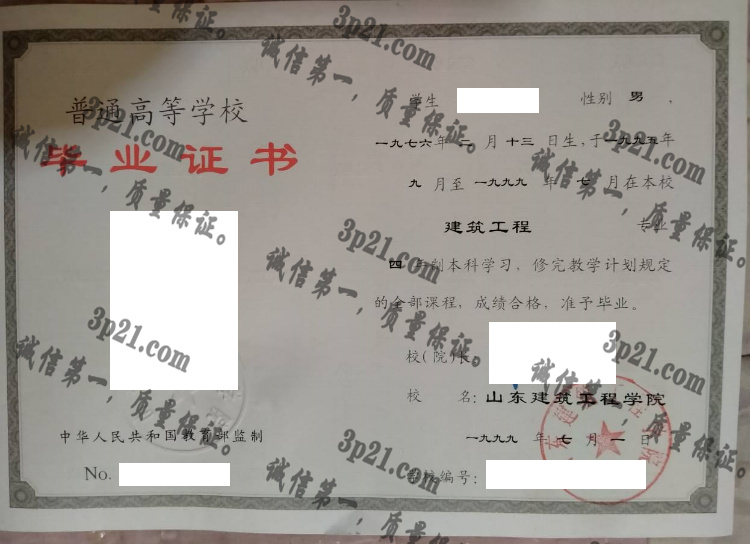 普通高等学校
毕业证书
中华人民共和国教育部监制
No.
学生 性别 男 ，
一九七六年二月十三日生，于一九九五年
九月至一九九九年七月在本校
建筑工程 专业
四年制本科学习，修完教学计划规定
的全部课程，成绩合格，准予毕业。
校（院）长：
校 名：山东建筑工程学院
一九九九年七月一日
学校编号：
3p21.com
诚信第一，质量保证。
3p21.com
诚信第一，质量保证。
3p21.com
诚信第一，质量保证。
3p21.com
诚信第一，质量保证。
3p21.com
诚信第一，质量保证。
3p21.com
诚信第一，质量保证。
3p21.com
诚信第一，质量保证。
3p21.com
诚信第一，质量保证。